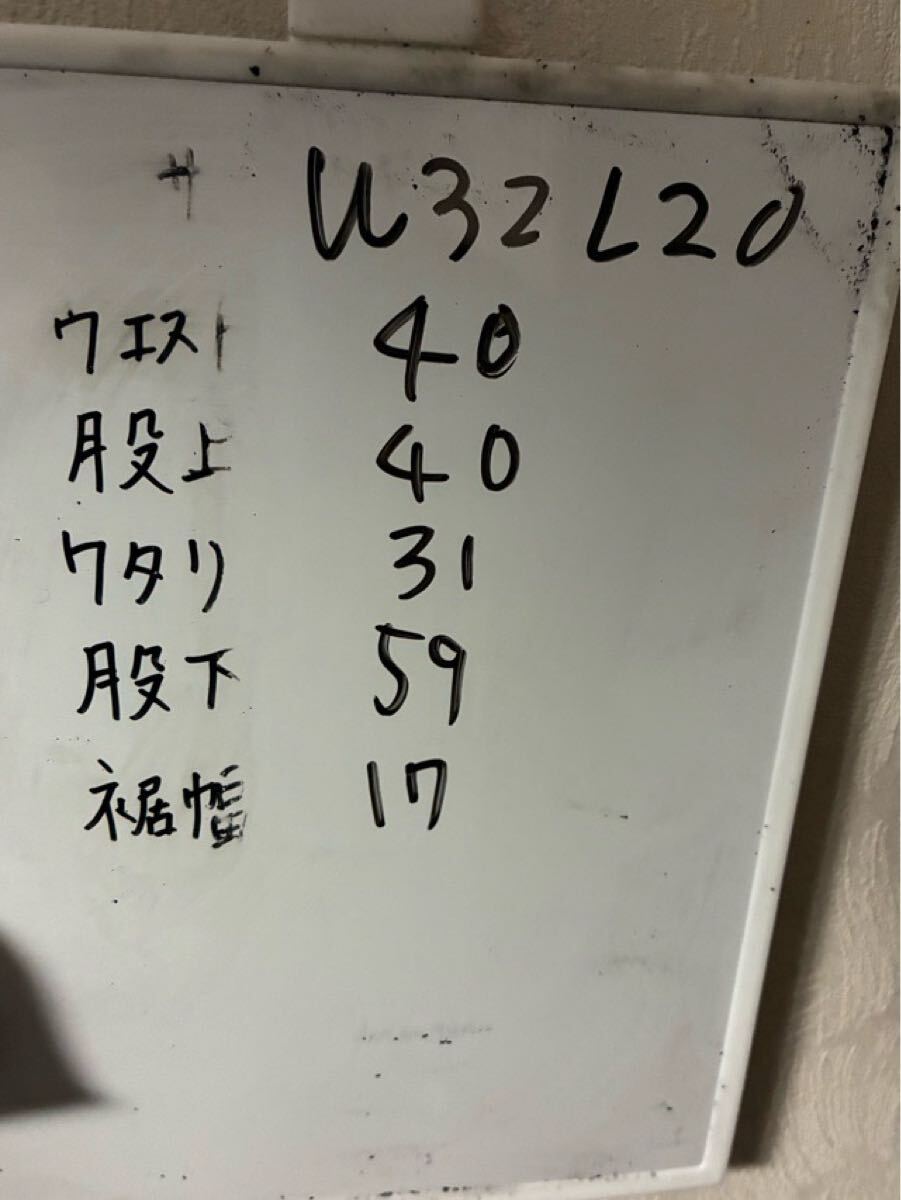 サ W32 L20
ウエスト 40
股上 40
ワタリ 31
股下 59
裾幅 17